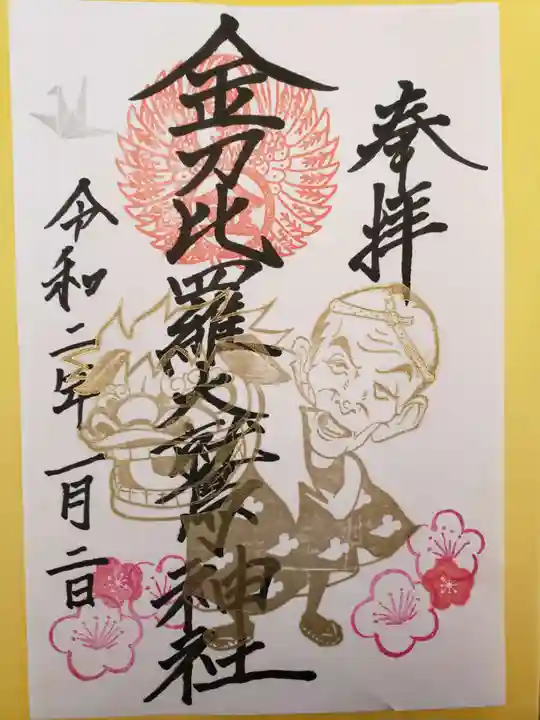 奉拝
金刀比羅大鷲神社
令和二年一月二日